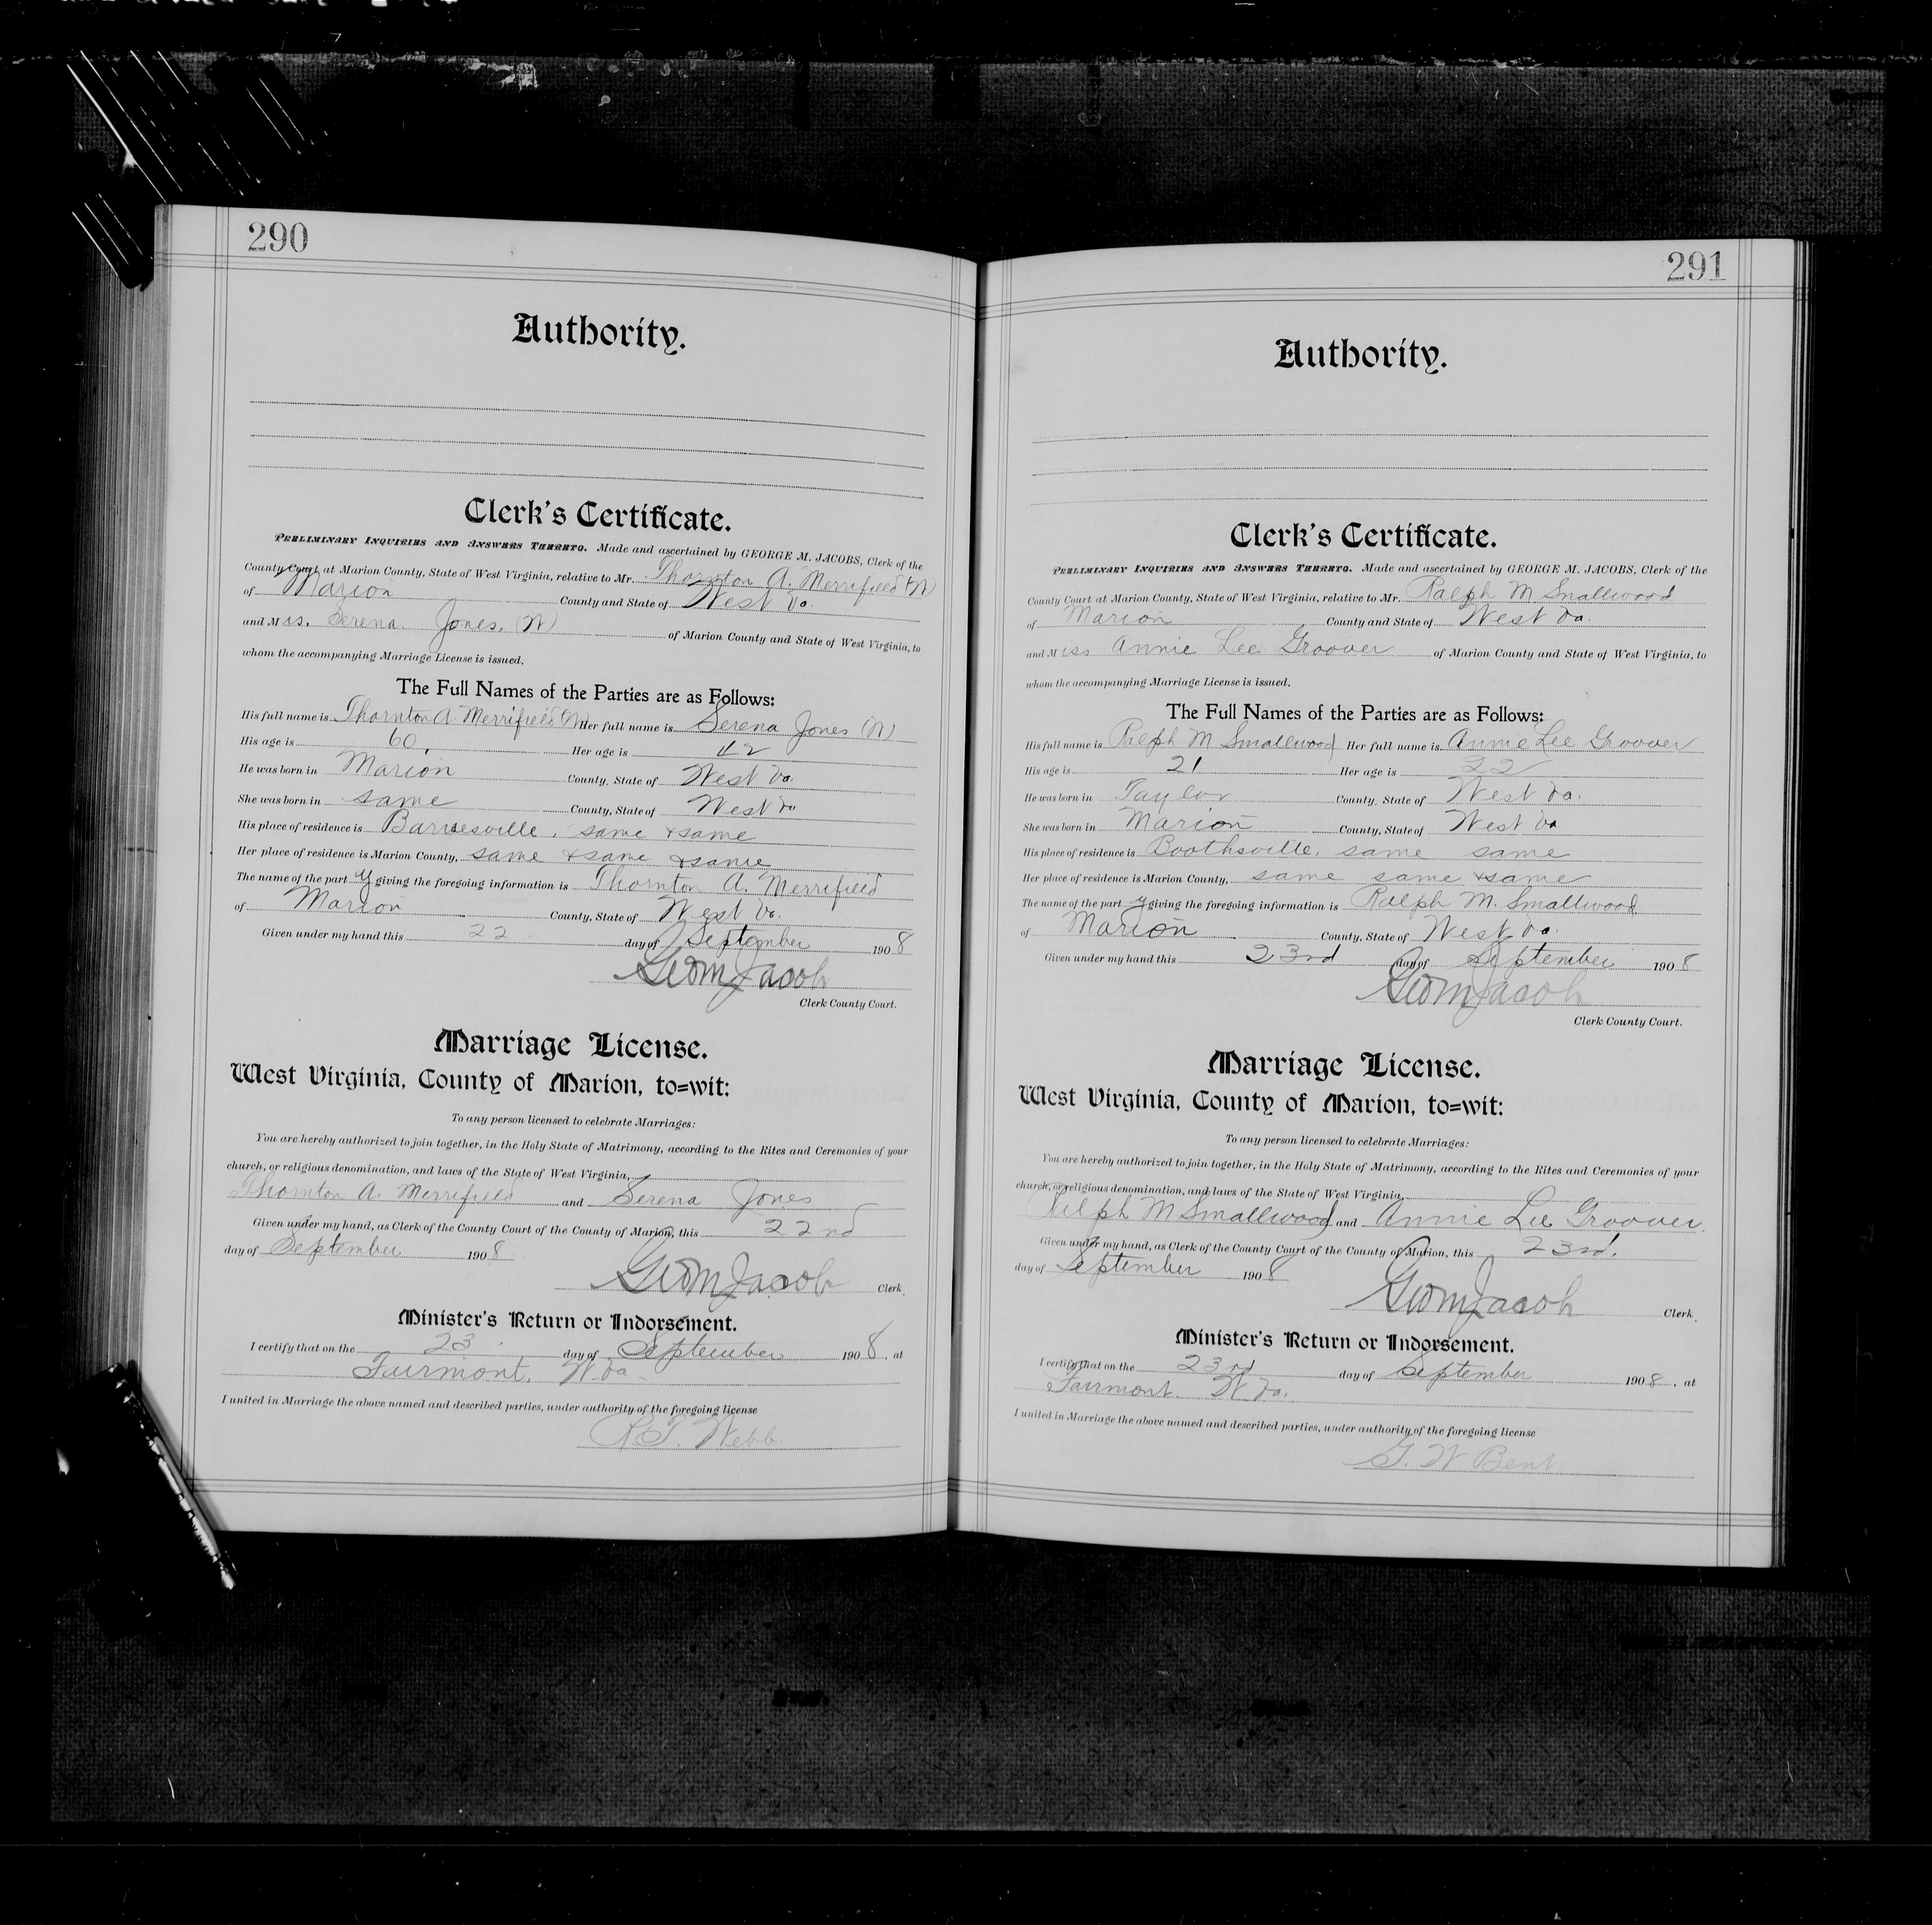 290
Authority.
Clerk's Certificate.
PRELIMINARY INQUIRIES AND ANSWERS THERETO. Made and ascertained by GEORGE M. JACOBS, Clerk of the
County Court at Marion County, State of West Virginia, relative to Mr. Thornton A. Merrifield (W)
of Marion County and State of West Va.
and Mrs. Serena Jones, (W) of Marion County and State of West Virginia, to
whom the accompanying Marriage License is issued.
The Full Names of the Parties are as Follows:
His full name is Thornton A. Merrifield (W) Her full name is Serena Jones (W)
His age is 60. Her age is 42
He was born in Marion County, State of West Va.
She was born in same County, State of West Va
His place of residence is Barnesville, same & same
Her place of residence is Marion County, same & same & same
The name of the party giving the foregoing information is Thornton A. Merrifield
of Marion County, State of West Va.
Given under my hand this 22 day of September 1908
Geo M Jacobs
Clerk County Court.
Marriage License.
West Virginia, County of Marion, to=wit:
To any person licensed to celebrate Marriages:
You are hereby authorized to join together, in the Holy State of Matrimony, according to the Rites and Ceremonies of your
church, or religious denomination, and laws of the State of West Virginia,
Thornton A. Merrifield and Serena Jones
Given under my hand, as Clerk of the County Court of the County of Marion, this 22nd
day of September 1908
Geo M Jacobs Clerk.
Minister's Return or Indorsement.
I certify that on the 23 day of September 1908, at
Fairmont, W. Va.
I united in Marriage the above named and described parties, under authority of the foregoing license
R. T. Webb
291
Authority.
Clerk's Certificate.
PRELIMINARY INQUIRIES AND ANSWERS THERETO. Made and ascertained by GEORGE M. JACOBS, Clerk of the
County Court at Marion County, State of West Virginia, relative to Mr. Ralph M Smallwood
of Marion County and State of West Va.
and Miss Annie Lee Groover of Marion County and State of West Virginia, to
whom the accompanying Marriage License is issued.
The Full Names of the Parties are as Follows:
His full name is Ralph M Smallwood Her full name is Annie Lee Groover
His age is 21 Her age is 22
He was born in Taylor County, State of West Va.
She was born in Marion County, State of West Va
His place of residence is Boothsville, same same
Her place of residence is Marion County, same same & same
The name of the party giving the foregoing information is Ralph M. Smallwood
of Marion County, State of West Va.
Given under my hand this 23rd day of September 1908
Geo M Jacobs
Clerk County Court.
Marriage License.
West Virginia, County of Marion, to=wit:
To any person licensed to celebrate Marriages:
You are hereby authorized to join together, in the Holy State of Matrimony, according to the Rites and Ceremonies of your
church, or religious denomination, and laws of the State of West Virginia,
Ralph M Smallwood and Annie Lee Groover.
Given under my hand, as Clerk of the County Court of the County of Marion, this 23rd.
day of September 1908
Geo M Jacobs Clerk.
Minister's Return or Indorsement.
I certify that on the 23rd day of September 1908, at
Fairmont. W. Va.
I united in Marriage the above named and described parties, under authority of the foregoing license
G. W Bent